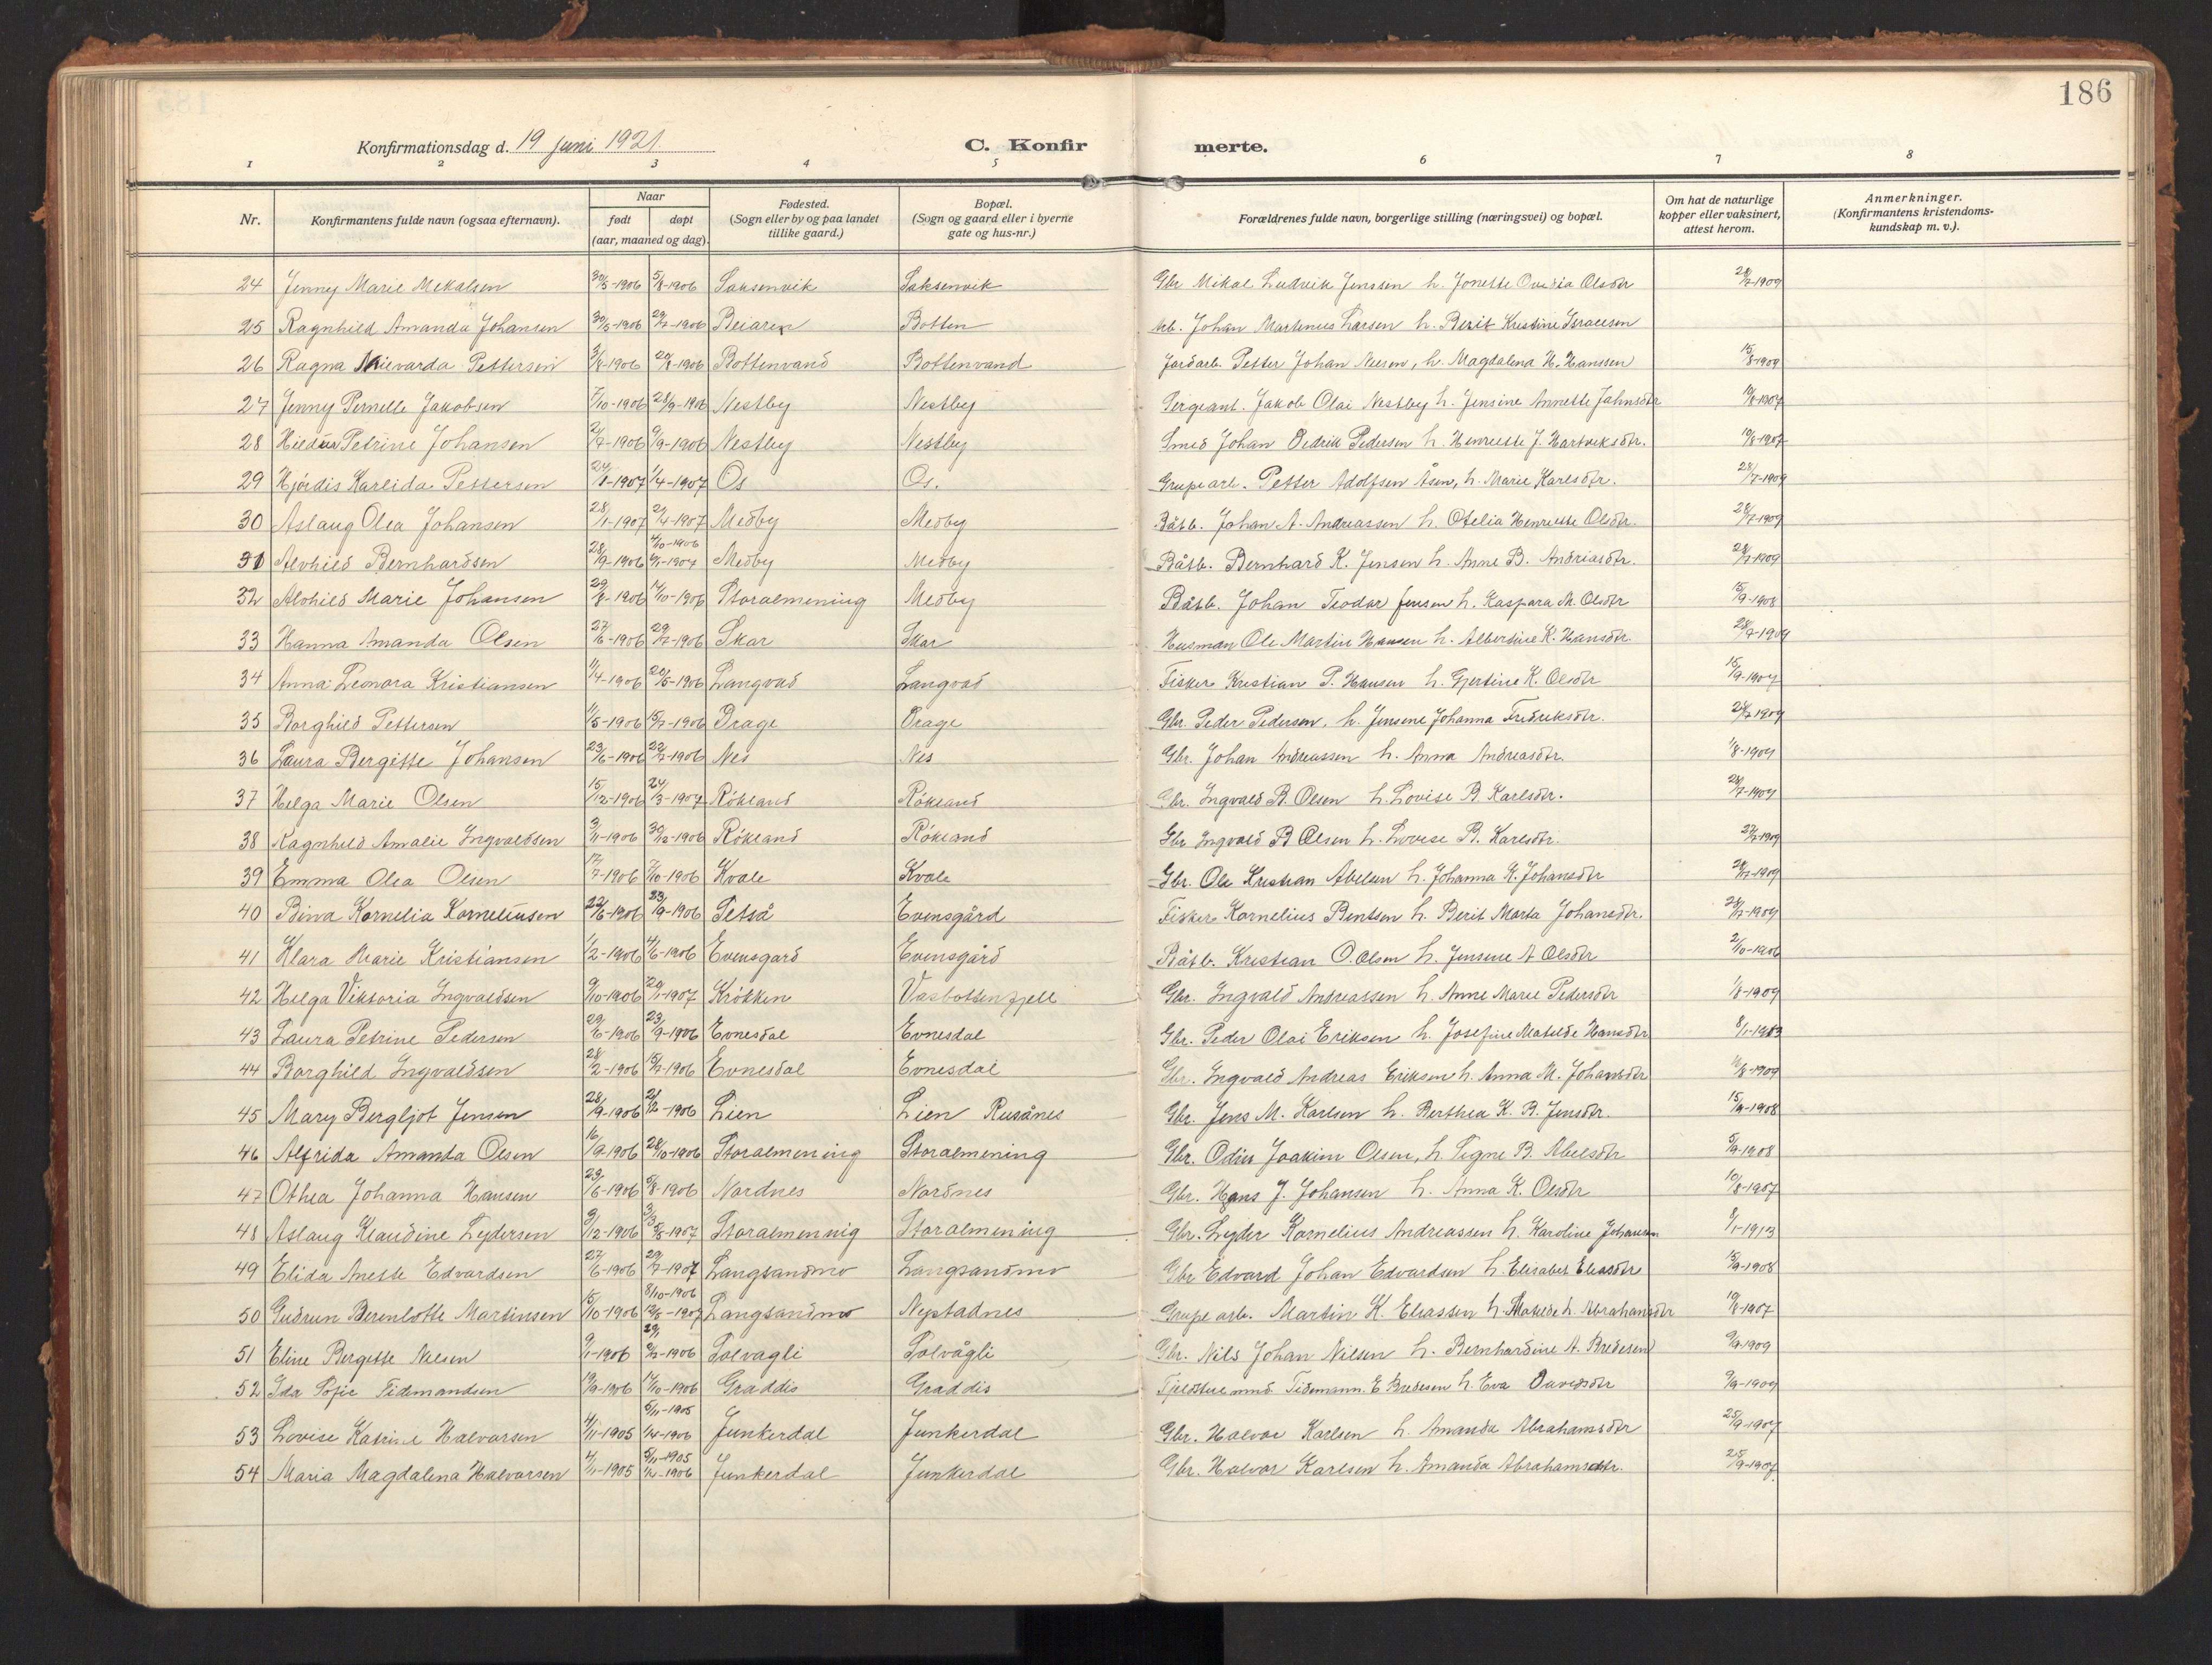 186
Konfirmationsdag d. 19 juni 1921. C. Konfir merte.
1 2 3 4 5 6 7 8
Nr. Konfirmantens fulde navn (ogsaa efternavn). Naar født døpt (aar, maaned og dag). Fødested. (Sogn eller by og paa landet tillike gaard.) Bopæl. (Sogn og gaard eller i byerne gate og hus-nr.) Forældrenes fulde navn, borgerlige stilling (næringsvei) og bopæl. Om hat de naturlige kopper eller vaksinert, attest herom. Anmerkninger. (Konfirmantens kristendoms-kundskap m. v.).
24 Jenny Marie Mikalsen 30/5-1906 5/8-1906 Saksenvik Saksenvik Gbr Mikal Ludvik Jenssen h. Jonette Olsdtr 28/7-1909
25 Ragnhild Amanda Johansen 30/5-1906 29/7-1906 Beiaren Botten Arb. Johan Martinus Larsen h. Berit Kristine Israelsen
26 Ragna Pettersen 3/8-1906 26/8-1906 Bottenvand Bottenvand Jordarb. Petter Johan h. Magdalena H. Hanssen 15/8-1909
27 Jenny Pernelle Jakobsen 7/10-1906 28/9-1906 Nestby Nestby Sergeant. Jakob Olai Nestby h. Jensine Annette Jahnsdtr 10/8-1907
28 Hildur Petrine Johansen 2/7-1906 9/9-1906 Nestby Nestby Smed Johan Didrik Pedersen h. Henriette J. Hartviksdtr. 10/8-1907
29 Hjørdis Karlida Pettersen 24/1-1907 1/4-1907 Os Os. Grupearb. Petter Adolfsen Åsen, h. Marie Karlsdtr. 28/7-1909
30 Aslaug Olea Johansen 28/1-1907 2/4-1907 Medby Medby Båtb. Johan A. Andreassen h. Otelia Henriette Olsdtr. 28/7-1909
31 Alvhild Bernhardsen 28/9-1906 4/10-1906 Medby Medby Båtb. Bernhard K. Jensen h. Anne B. Andriasdtr. 28/7-1909
32 Alvhild Marie Johansen 29/8-1906 14/10-1906 Storalmening Medby Båtb. Johan Teodor Jensen h. Kaspara M. Olsdtr 15/9-1908
33 Hanna Amanda Olsen 27/6-1906 29/7-1906 Skar Skar Husman Ole Martin Hansen h. Albertine K. Hansdtr. 28/7-1909
34 Anna Leonora Kristiansen 1/4-1906 20/5-1906 Langvad Langvad Fisker Kristian P. Hansen h. Gjertine K. Olsdtr 15/9-1907
35 Borghild Pettersen 11/5-1906 15/7-1906 Drage Drage Gbr. Peder Pedersen, h. Jensine Johanna Fredriksdtr. 28/7-1909
36 Laura Bergitte Johansen 23/6-1906 22/7-1906 Nes Nes Gbr. Johan Andreassen h. Anna Andreasdtr. 1/8-1909
37 Helga Marie Olsen 15/12-1906 24/3-1907 Røkland Røkland Gbr. Ingvald B. Olsen h. Lovise B. Karlsdtr. 28/7-1909
38 Ragnhild Amalie Ingvaldsen 3/11-1906 30/12-1906 Røkland Røkland Gbr Ingvald B Olsen h. Lovise B. Karlsdtr. 27/7-1909
39 Emma Olea Olsen 17/7-1906 7/10-1906 Kvale Kvale Gbr. Ole Kristian Abelsen h. Johanna K. Johansdtr 28/7-1909
40 Bina Kornelia Korneliusen 22/6-1906 23/9-1906 Setså Evensgård Fisker Kornelius Bentsen h. Berit Marta Johansdtr. 28/7-1909
41 Klara Marie Kristiansen 1/2-1906 4/6-1906 Evensgard Evensgård Båtb. Kristian O. Olsen h. Jensine A Olsdtr 2/10-1906
42 Helga Viktoria Ingvaldsen 9/10-1906 20/1-1907 Krökken Vasbottenfjell Gbr. Ingvald Andreassen h. Anne Marie Pedersdtr 1/8-1909
43 Laura Petrine Pedersen 29/6-1906 23/9-1906 Evnesdal Evnesdal Gbr. Peder Olai Eriksen h. Josefine Matilde Hansdtr 8/1-1913
44 Borghild Ingvaldsen 28/2-1906 15/7-1906 Evnesdal Evnesdal Gbr. Ingvald Andreas Eriksen h. Anna M. Johansdtr 11/8-1909
45 Mary Bergljot Jensen 28/9-1906 21/12-1906 Lien Lien Rusånes Gbr. Jens M. Karlsen h. Berthea K. B. Jensdtr. 15/9-1908
46 Alfrida Amanda Olsen 16/9-1906 28/10-1906 Storalmening Storalmening Gbr. Odin Joakim Olsen, h. Signe B. Abelsdtr 5/9-1908
47 Othea Johanna Hansen 23/6-1906 5/8-1906 Nordnes Nordnes Gbr. Hans J. Johansen h. Anna K. Olsdtr 10/8-1907
48 Aslaug Klaudine Lydersen 9/12-1906 3/3 5/5-1907 Storalmennig Storalmening Gbr. Lyder Kornelius Andreassen h. Karoline Johansen 8/1-1913
49 Elida Anette Edvardsen 27/6-1906 29/7-1907 Langsandmo Langsandmo Gbr Edvard Johan Edvardsen h. Elisabet Eliasdtr 15/9-1908
50 Gudrun Berenlotte Martinsen 15/10-1906 8/10-1906 12/5-1907 Langsandmo Neptadnes Grupe arb. Martin K. Eliassen h. Matilde L. Abrahamsdtr 10/8-1907
51 Eline Bergitte Nilsen 9/1-1906 Solvagli Solvågli Gbr. Nils Johan Nilsen h. Bernhardine A. Bredesen 9/9-1909
52 Ida Sofie Tidemandsen 19/9-1906 14/10-1906 Graddis Graddis Fjeldstuemnd. Tidemann. E Bredesen h. Eva Davidsdtr 9/9-1909
53 Lovise Katrine Halvorsen 4/11-1905 5/11-1905 1/4-1906 Junkerdal Junkerdal Gbr. Halvor Karlsen h. Amanda Abrahamsdtr 25/9-1907
54 Maria Magdalena Halvorsen 4/11-1905 5/11-1905 1/4-1906 Junkerdal Junkerdal Gbr. Halvor Karlsen h. Amanda Abrahamsdtr. 25/9-1907